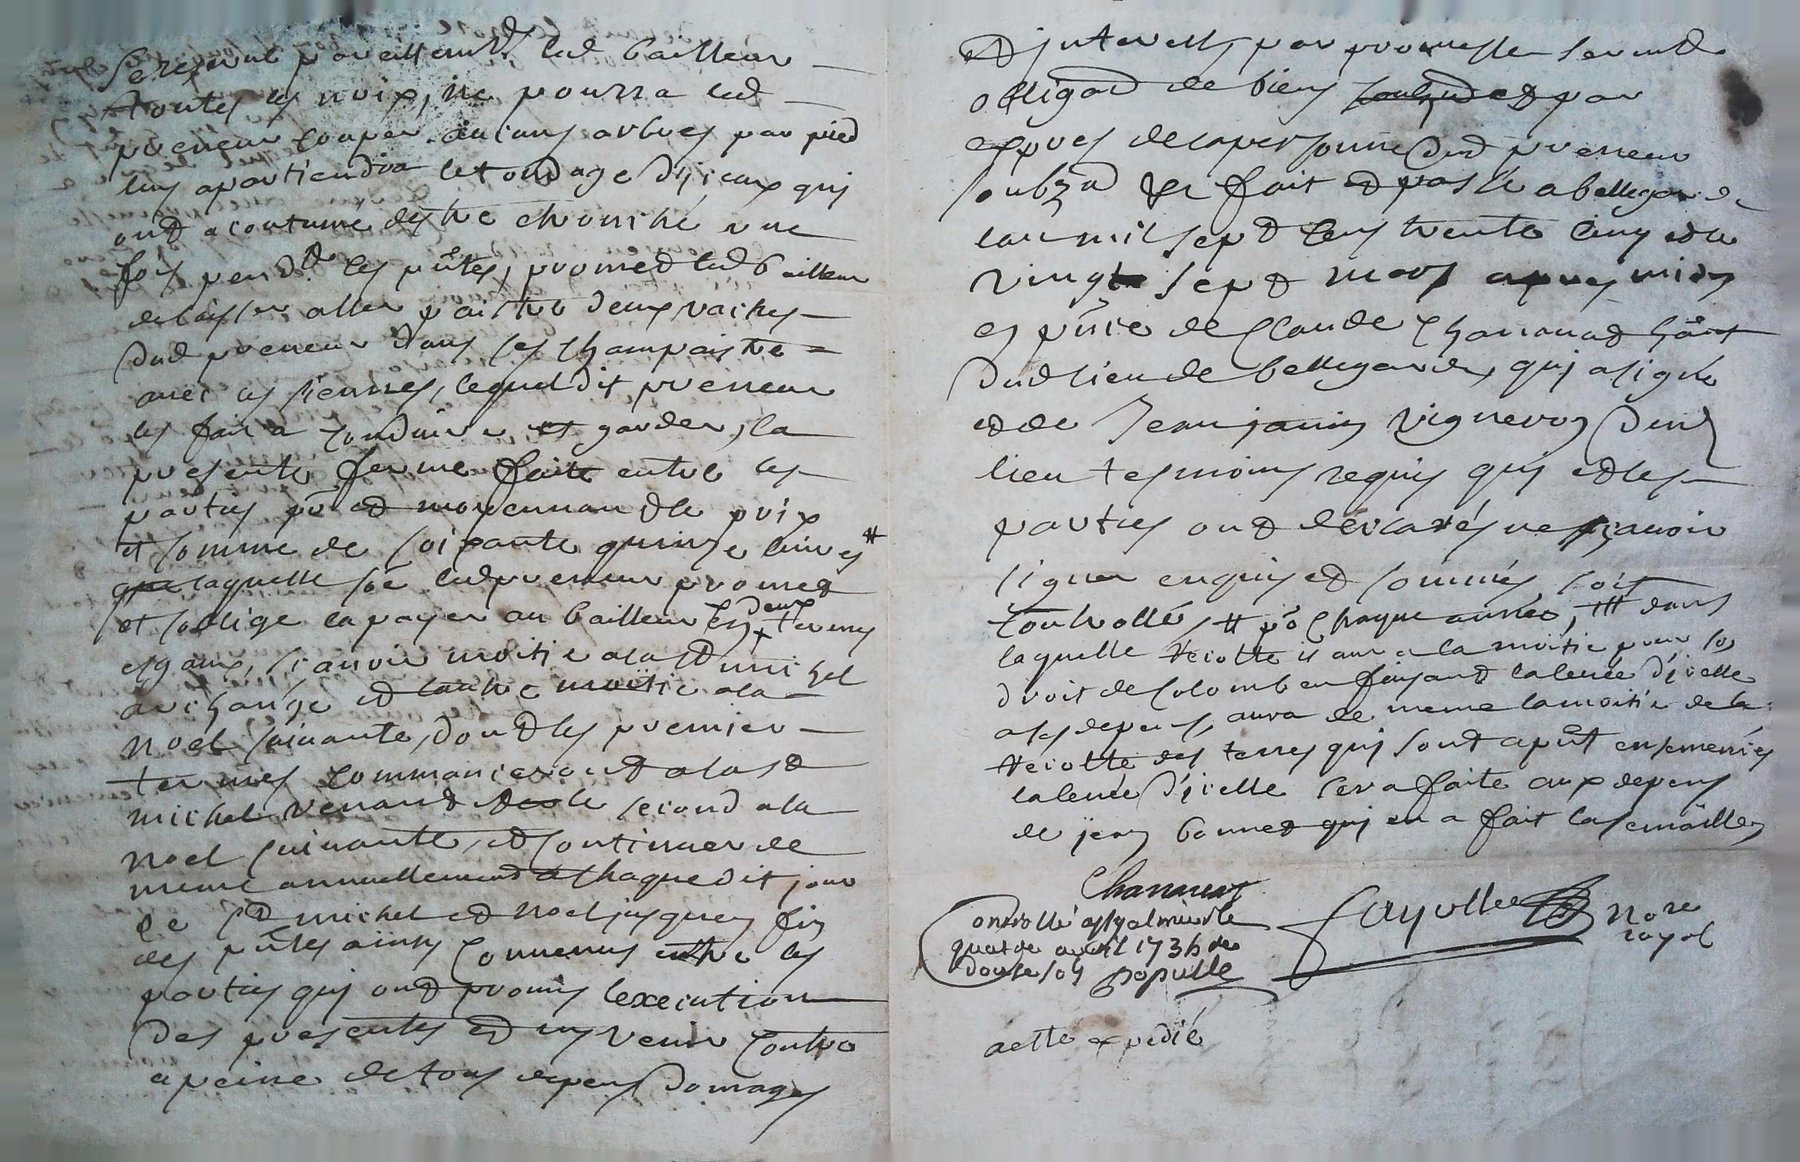 Se reserve pareillemt led bailleur
toutes les noix, ne pourra led
preneur couper aucuns arbres par pied
luy apartiendra letondage dyiceux quy
ont acoutume destre ebronché une
fois pendt les pntes, promet led bailleur
delaisser aller paistre deux vaches
dud preneur dans les champaistre
avec les siennes, lequel dit preneur
les faira conduire et garder, la
presente ferme faite entre les
parties pn et moyennant le prix
et somme de soixante quinze livres #
laquelle soe led preneur promet
et soblige la payer au bailleur En deux termes
esgaux, scavoir moitie a la st michel
archange et lautre moitie a la
noel suivante, dont les premier
termes commanceront a la st
michel venant le second a la
noel suivante, et continuer de
meme annuellement a chaque dit jour
de st michel et noel jusques en fin
des pntes ainsy Convenus entre les
parties quy ont promis lexecution
des presentes et ny venir Contre
a peine de tous depens domages
et interests par promesse serment
obligaon de biens et par
expres de sa personne dud preneur
soubzon &r fait et passé a bellegarde
lan mil sept Cens trente Cinq et le
vingt sept mars apres midy
en pnce de Claude Chananat hant
dud lieu de bellegarde, quy a signé
et de Benjamin vigneron dud
lieu tesmoins requis quy et les
parties ont declarés ne scavoir
signer enquis et sommés soit
Controllé, # po Chaque année, ## dans
laquelle recolte il aura la moitie pour son
droit de Colomb en faisant la levée d'icelle
a ses depens, aura de meme la moitie de la
recolte des terres quy sont apnt ensemencés
la levée d'icelle sera faite aux depens
de jean bonnet quy en a fait la semaille
Chananat
Controllé a st galmier le
quatre avril 1735 de
douse sols populle
fayolle nore
royal
acte expedié